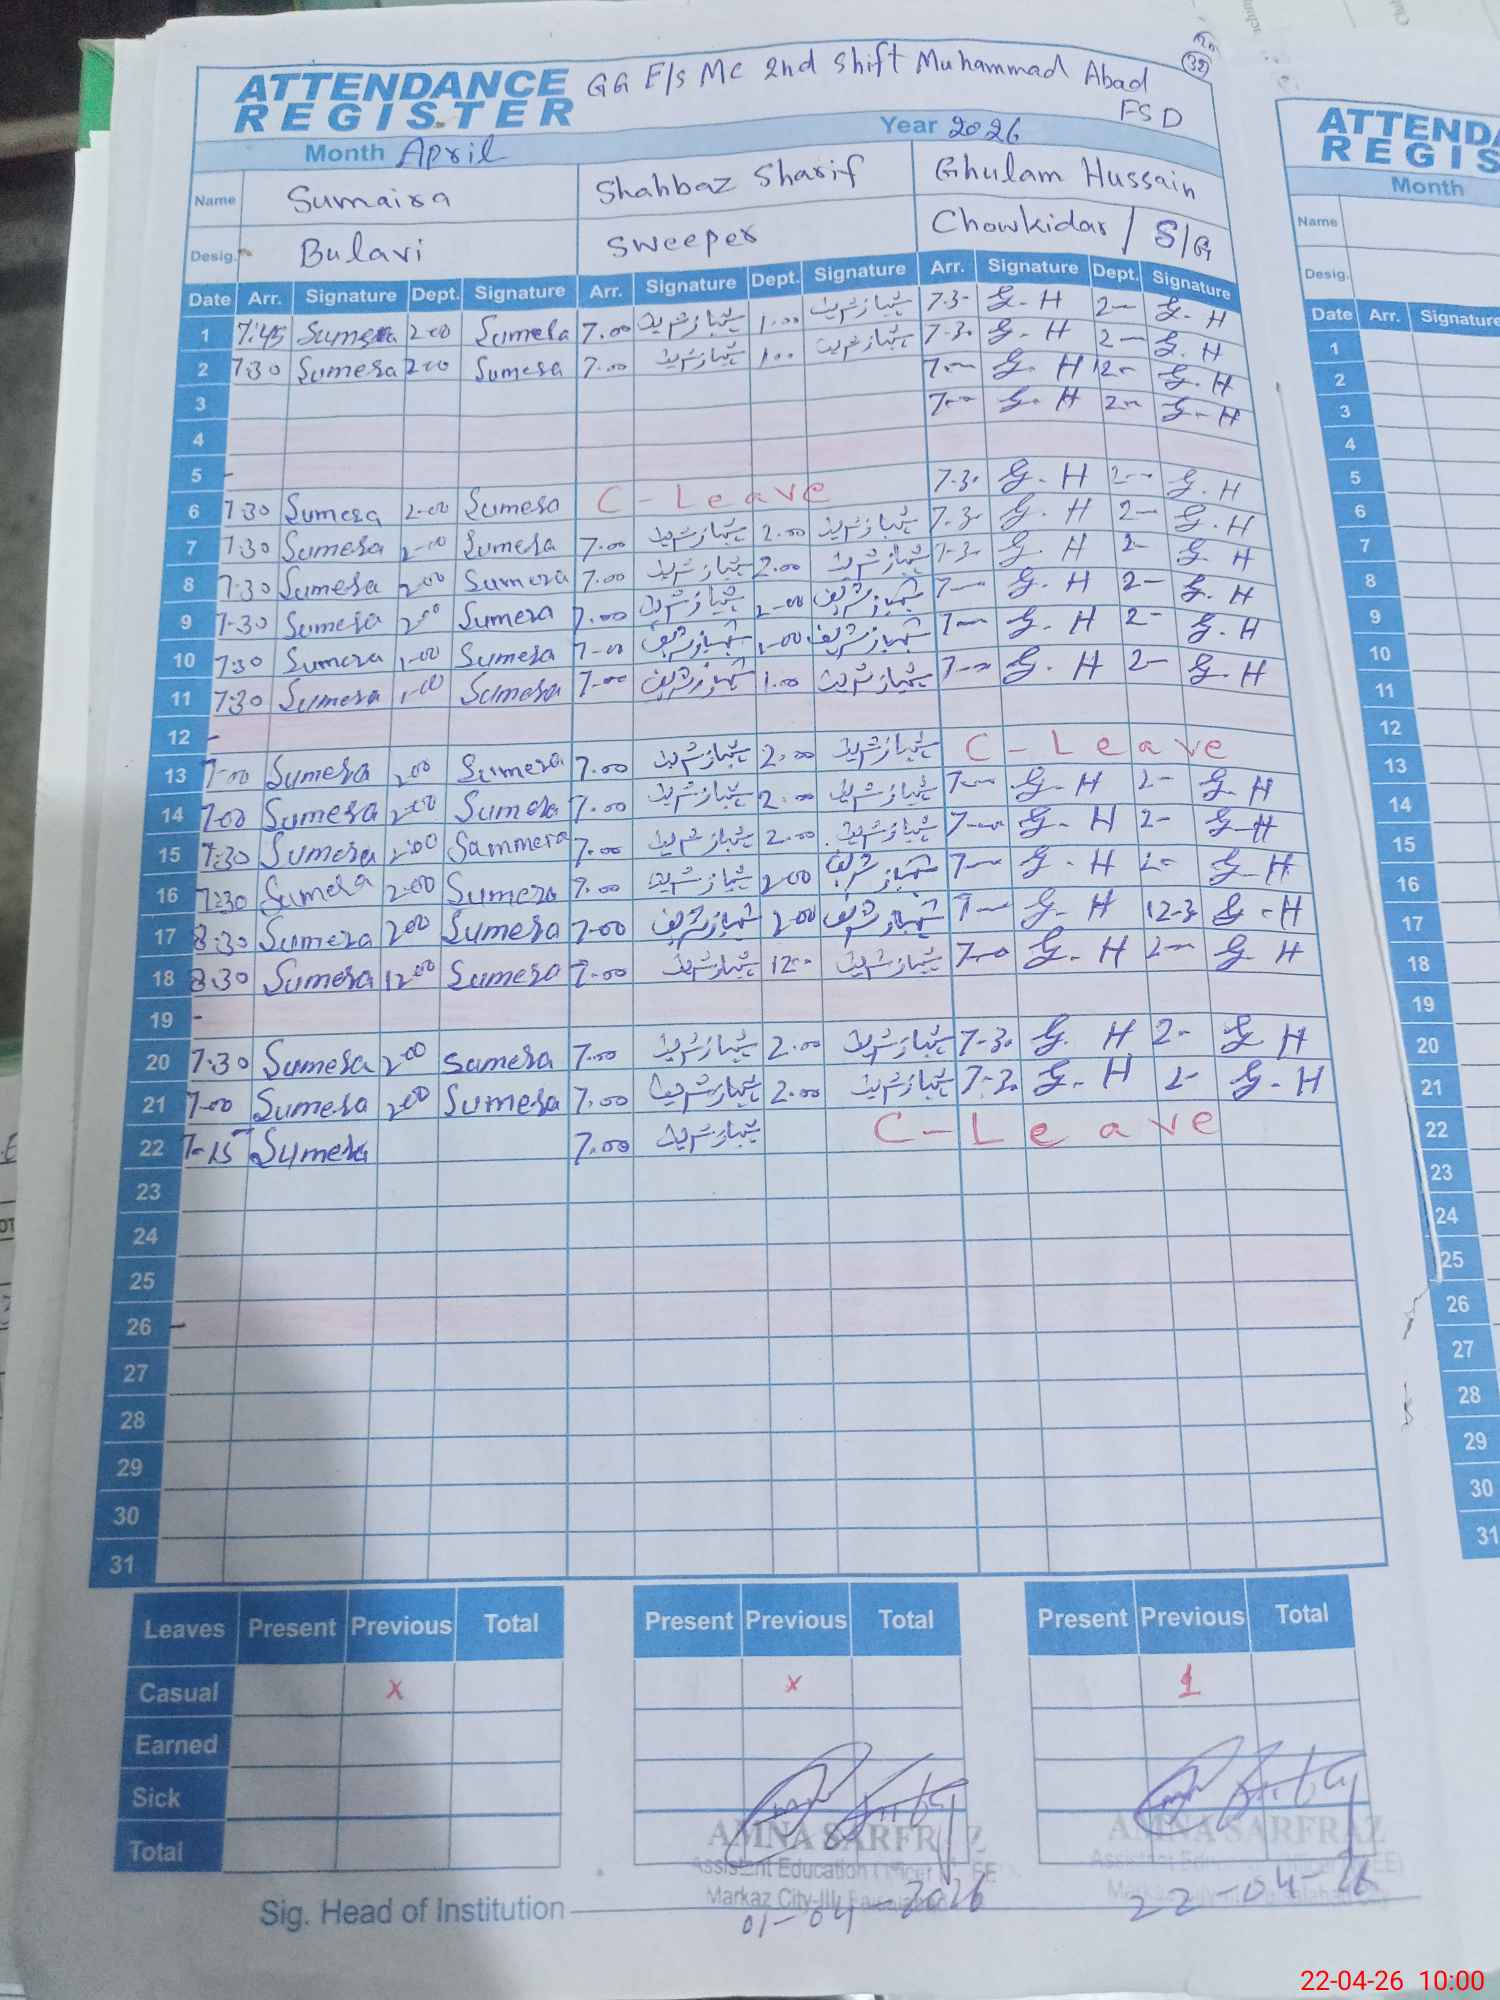 ATTENDANCE REGISTER GG E/s MC 2nd Shift Muhammad Abad FSD
Month April Year 2026
Name Sumaira Shahbaz Sharif Ghulam Hussain
Desig. Bulavi Sweeper Chowkidar / S/G
Date Arr. Signature Dept. Signature Arr. Signature Dept. Signature Arr. Signature Dept. Signature
1 7:45 Sumera 2:00 Sumera 7.00 شہباز شریف 1.00 شہباز شریف 7-30 G. H 2-- G. H
2 7:30 Sumera 2:00 Sumera 7.00 شہباز شریف 1.00 شہباز شریف 7-30 G. H 2-- G. H
3 7-- G. H 12-- G. H
4 7-- G. H 2-- G-H
5 -
6 7:30 Sumera 2-00 Sumera C - Leave 7-30 G. H 2-- G. H
7 7:30 Sumera 2-00 Sumera 7.00 شہباز شریف 2.00 شہباز شریف 7-30 G. H 2-- G. H
8 7:30 Sumera 2:00 Sumera 7.00 شہباز شریف 2.00 شہباز شریف 7-30 G. H 2- G. H
9 7-30 Sumera 2:00 Sumera 7.00 شہباز شریف 2-00 شہباز شریف 7-- G. H 2- G. H
10 7:30 Sumera 1-00 Sumera 7-00 شہباز شریف 1-00 شہباز شریف 7-- G. H 2- G. H
11 7:30 Sumera 1-00 Sumera 7-00 شہباز شریف 1.00 شہباز شریف 7-- G. H 2- G. H
12 -
13 7-00 Sumera 2:00 Sumera 7.00 شہباز شریف 2.00 شہباز شریف C - Leave
14 7-00 Sumera 2:00 Sumera 7.00 شہباز شریف 2.00 شہباز شریف 7-- G. H 2- G. H
15 7:30 Sumera 2:00 Sammera 7.00 شہباز شریف 2.00 شہباز شریف 7-- G. H 2- G-H
16 7:30 Sumera 2:00 Sumera 7.00 شہباز شریف 2.00 شہباز شریف 7-- G. H 2- G-H
17 8:30 Sumera 2:00 Sumera 7-00 شہباز شریف 2-00 شہباز شریف 7-- G. H 12-3 G-H
18 8:30 Sumera 12:00 Sumera 7.00 شہباز شریف 12-- شہباز شریف 7-- G. H 2-- G. H
19 -
20 7:30 Sumera 2:00 Sumera 7.00 شہباز شریف 2.00 شہباز شریف 7-30 G. H 2- G H
21 7-00 Sumera 2:00 Sumera 7.00 شہباز شریف 2.00 شہباز شریف 7-30 G. H 2- G. H
22 7-15 Sumera 7.00 شہباز شریف C - Leave
23
24
25
26 -
27
28
29
30
31
Leaves Present Previous Total Present Previous Total Present Previous Total
Casual x x 1
Earned
Sick
Total
AMNA SARFRAZ AMNA SARFRAZ
Assistent Education Officer
Markaz City-III
Sig. Head of Institution 01-04-2026 22-04-26
ATTENDA
REGIS
Month
Name
Desig.
Date Arr. Signature
1
2
3
4
5
6
7
8
9
10
11
12
13
14
15
16
17
18
19
20
21
22
23
24
25
26
27
28
29
30
31
22-04-26 10:00